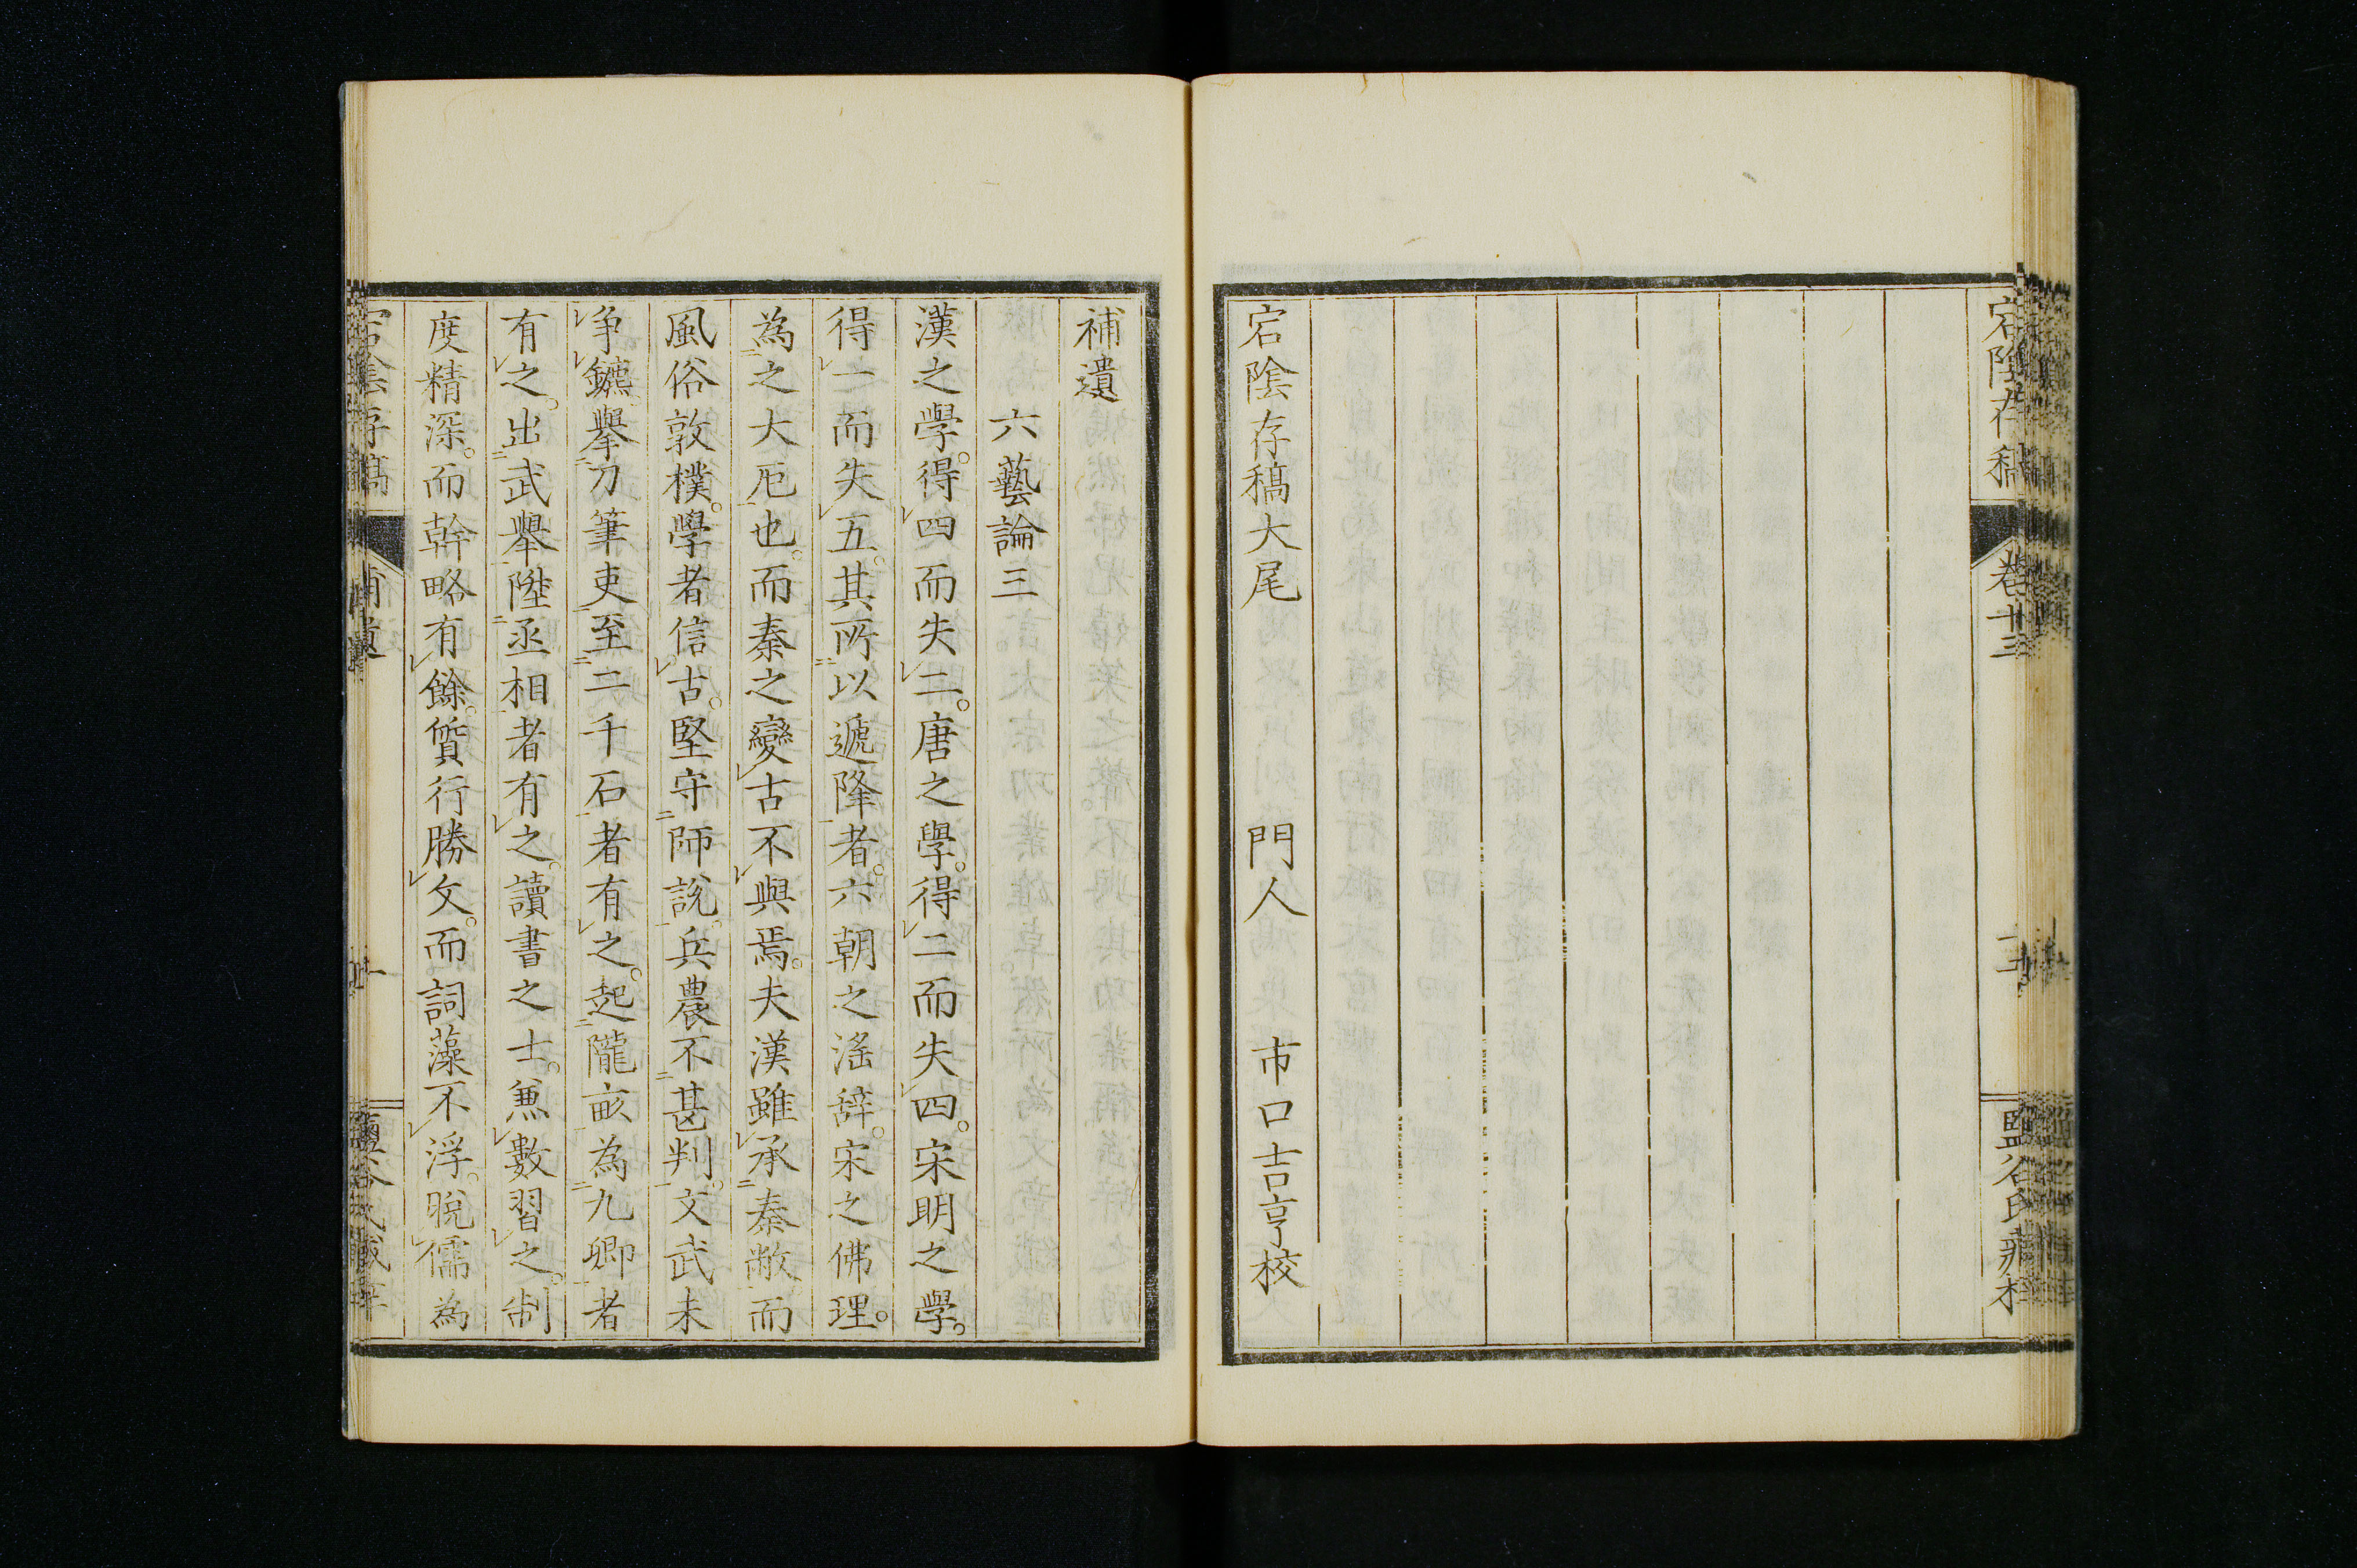 宕陰存稿
卷十三
鹽谷氏藏梓
宕陰存稿大尾 門人 市口吉亨校
補遺
六藝論三
漢之學。得四而失二。唐之學。得二而失四。宋明之學。
得一而失五。其所以遞降者。六朝之滛辭。宋之佛理。
為之大厄也。而秦之變古不與焉。夫漢雖承秦敝。而
風俗敦樸。學者信古。堅守師說。兵農不甚判。文武未
争鑣。擧刀筆吏至二千石者有之。起隴畝為九卿者
有之。出武擧陞丞相者有之。讀書之士。兼數習之。制
度精深。而幹略有餘。質行勝文。而詞藻不浮。脫儒為
宕陰存稿
補遺
一